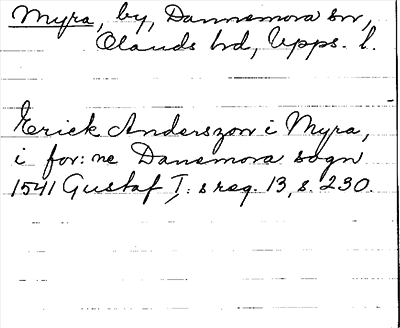 Myra, by, Dannemora sn,
Olands hd, Upps. l.
Erick Anderszon i Myra,
i for:ne Danemora sogn
1541 Gustaf I: s reg. 13, s. 230.